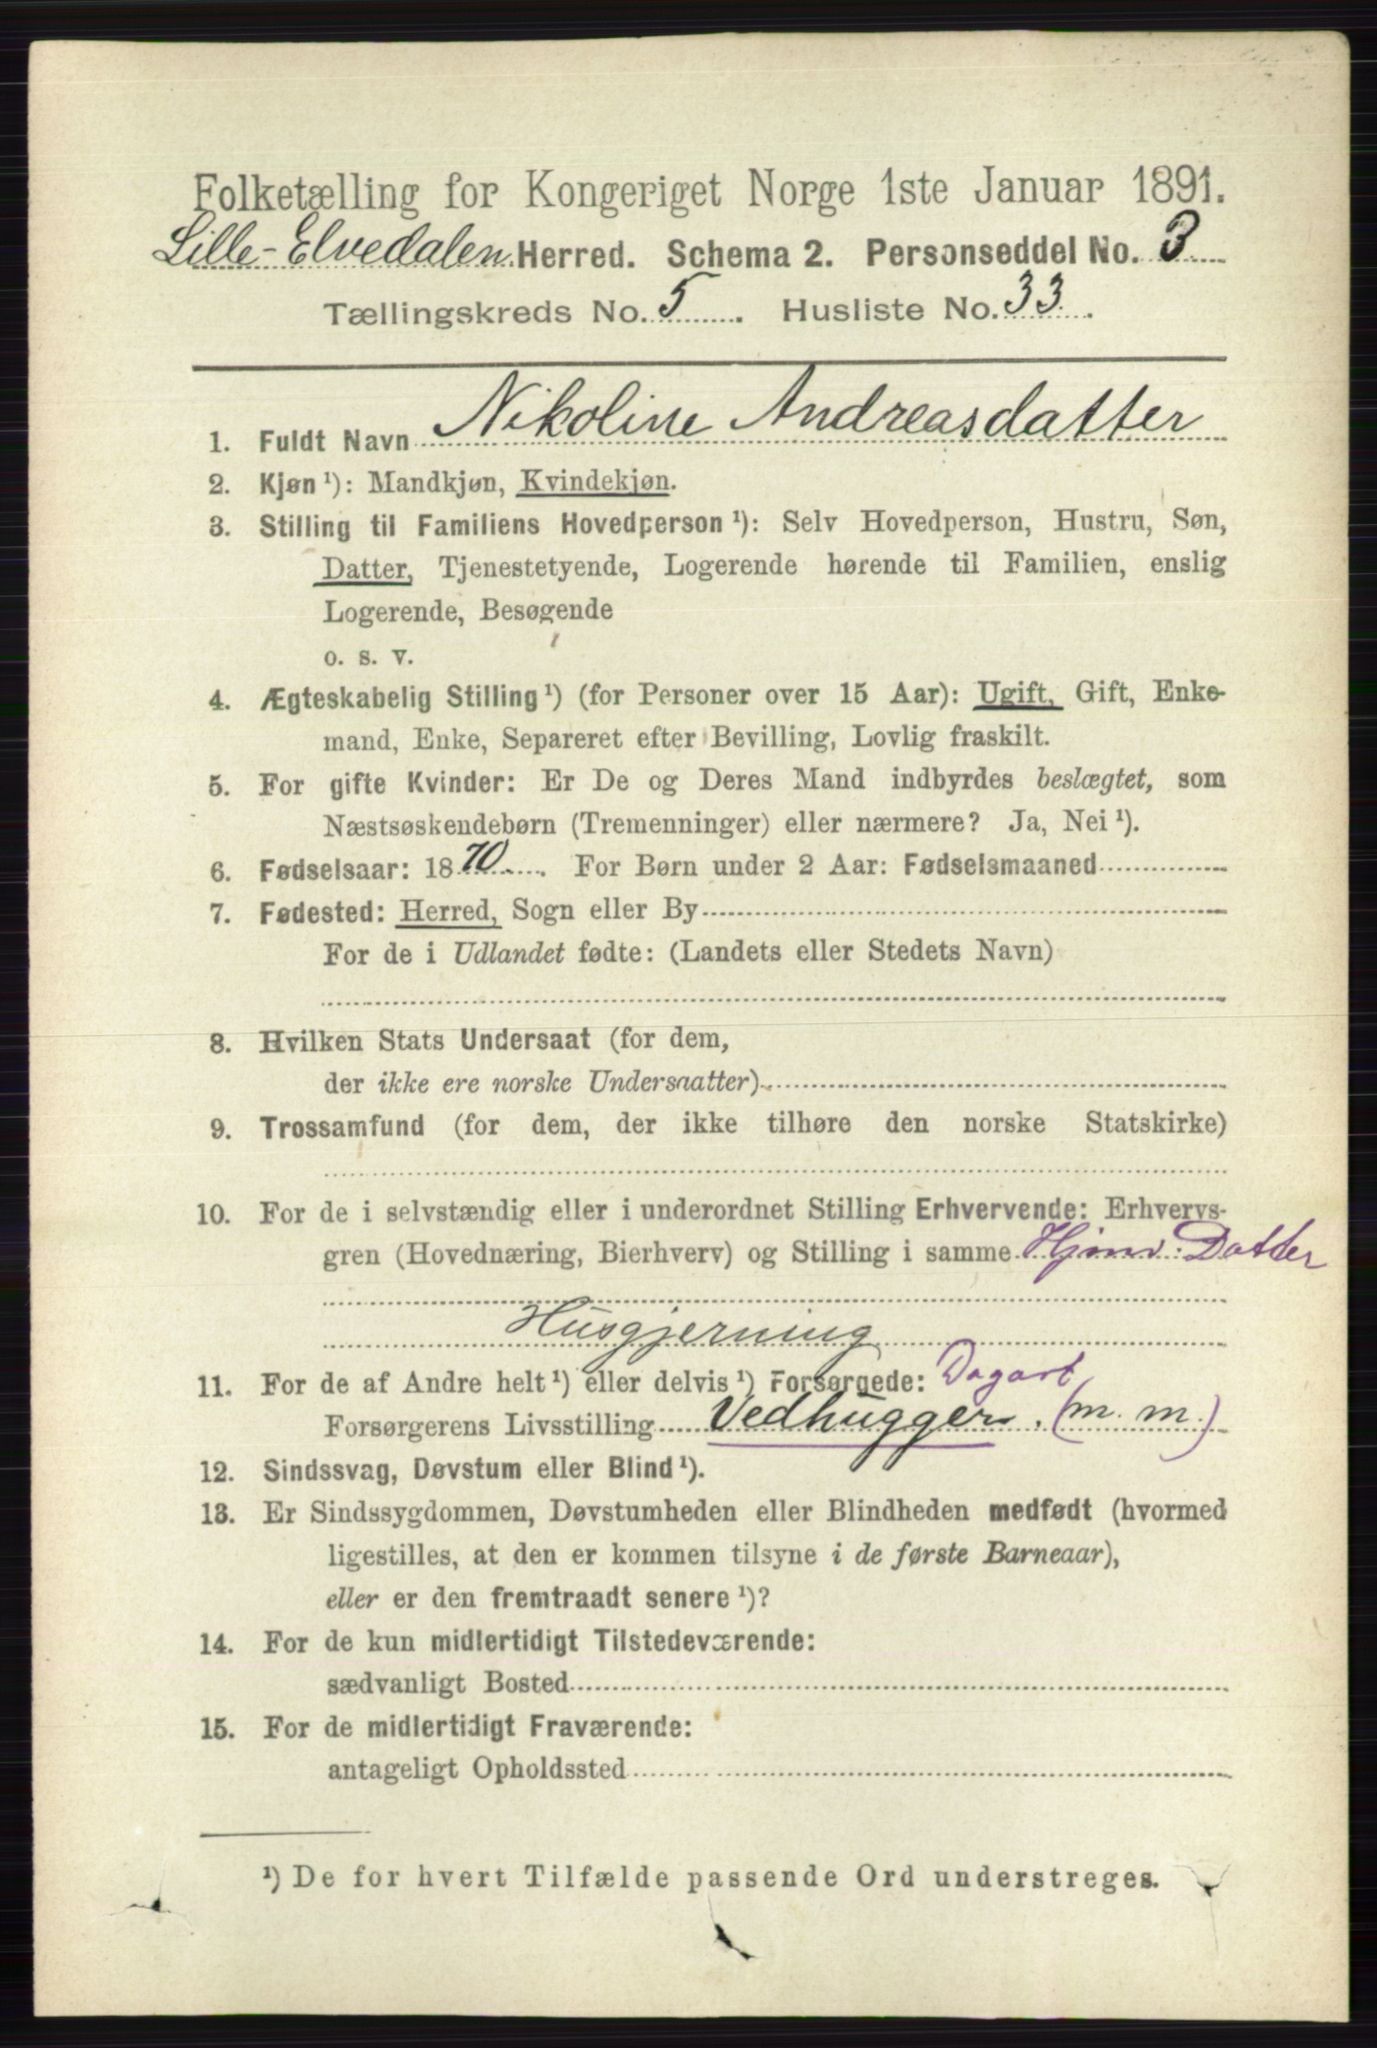 Folketælling for Kongeriget Norge 1ste Januar 1891.
Lille-Elvedalen Herred. Schema 2. Personseddel No. 3
Tællingskreds No. 5. Husliste No. 33.
1. Fuldt Navn Nikoline Andreasdatter
2. Kjøn ¹): Mandkjøn, Kvindekjøn.
3. Stilling til Familiens Hovedperson ¹): Selv Hovedperson, Hustru, Søn,
Datter, Tjenestetyende, Logerende hørende til Familien, enslig
Logerende, Besøgende
o. s. v.
4. Ægteskabelig Stilling ¹) (for Personer over 15 Aar): Ugift, Gift, Enke-
mand, Enke, Separeret efter Bevilling, Lovlig fraskilt.
5. For gifte Kvinder: Er De og Deres Mand indbyrdes beslægtet, som
Næstsøskendebørn (Tremenninger) eller nærmere? Ja, Nei ¹).
6. Fødselsaar: 1870. For Børn under 2 Aar: Fødselsmaaned
7. Fødested: Herred, Sogn eller By
For de i Udlandet fødte: (Landets eller Stedets Navn)
8. Hvilken Stats Undersaat (for dem,
der ikke ere norske Undersaatter)
9. Trossamfund (for dem, der ikke tilhøre den norske Statskirke)
10. For de i selvstændig eller i underordnet Stilling Erhvervende: Erhvervs-
gren (Hovednæring, Bierhverv) og Stilling i samme Datter
Husgjerning
11. For de af Andre helt ¹) eller delvis ¹) Forsørgede: Dagarb
Forsørgerens Livsstilling Vedhugger. (m. m.)
12. Sindssvag, Døvstum eller Blind ¹).
13. Er Sindssygdommen, Døvstumheden eller Blindheden medfødt (hvormed
ligestilles, at den er kommen tilsyne i de første Barneaar),
eller er den fremtraadt senere ¹)?
14. For de kun midlertidigt Tilstedeværende:
sædvanligt Bosted
15. For de midlertidigt Fraværende:
antageligt Opholdssted
¹) De for hvert Tilfælde passende Ord understreges.